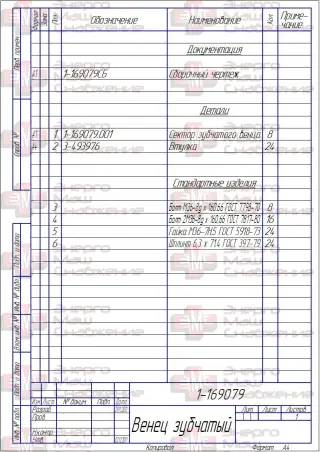 Формат Зона Поз Обозначение Наименование Кол Приме-
чание
Документация
А1 1-169079СБ Сборочный чертеж
Детали
А1 1 1-169079.001 Сектор зубчатого венца 8
А4 2 3-493976 Втулка 24
Стандартные изделия
3 Болт М36-8g х 160.66 ГОСТ 7798-70 8
4 Болт 2М36-8g х 160.66 ГОСТ 7817-80 16
5 Гайка М36-7Н.5 ГОСТ 5918-73 24
6 Шплинт 6.3 х 71.4 ГОСТ 397-79 24
Перв. примен.
Справ. №
Подп. и дата
Инв. № дубл.
Взам. инв. №
Подп. и дата
Инв. № подл.
1-169079
Изм. Лист № докум. Подп. Дата
Разраб.
Пров.
Н.контр.
Утв.
Венец зубчатый
Лит. Лист Листов
1
Копировал Формат А4
Энерго
Маш
Снабжение
ЭМС